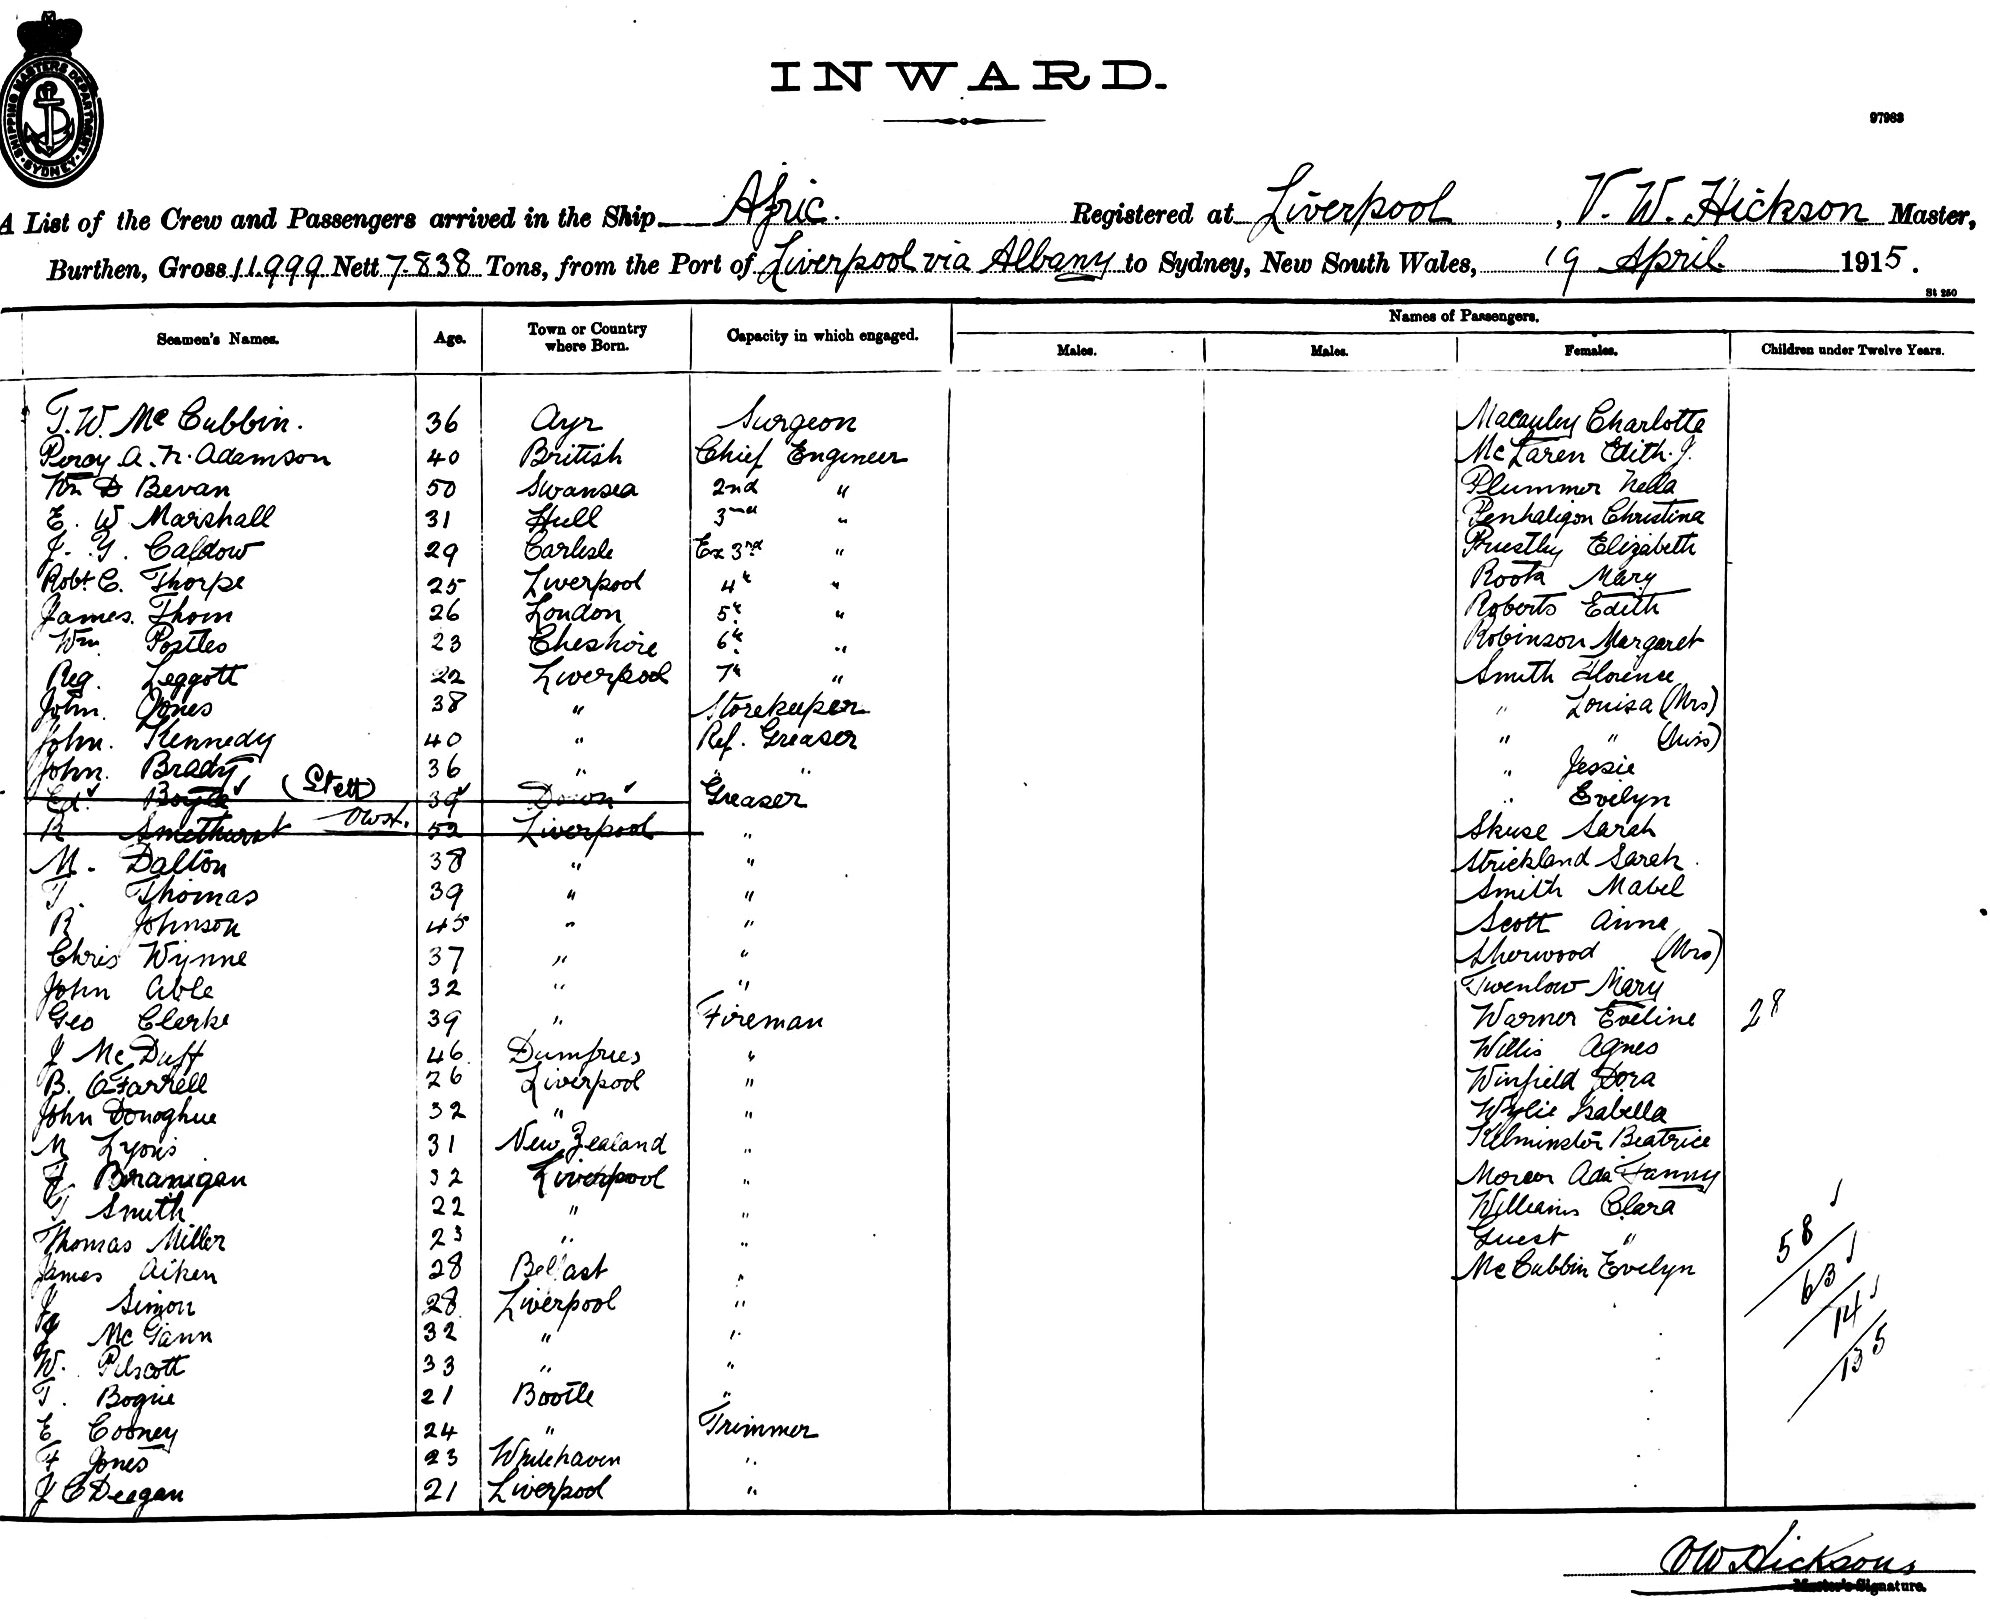 SHIPPING MASTERS DEPARTMENT · SYDNEY ·
INWARD.
97983
A List of the Crew and Passengers arrived in the Ship Afric. Registered at Liverpool, V. W. Hickson Master,
Burthen, Gross 11.999 Nett 7.838 Tons, from the Port of Liverpool via Albany to Sydney, New South Wales, 19 April 1915.
St 250
Seamen's Names. Age. Town or Country where Born. Capacity in which engaged. Names of Passengers.
Males. Males. Females. Children under Twelve Years.
T. W. Mc Cubbin. 36 Ayr Surgeon Macauley Charlotte
Percy A. N. Adamson 40 British Chief Engineer Mc Laren Edith. J.
Wm D Bevan 50 Swansea 2nd " Plummer Nella
E. W Marshall 31 Hull 3rd " Penhaligon Christina
J. G. Caldow 29 Carlisle Ex 3rd " Priestley Elizabeth
Robt C. Thorpe 25 Liverpool 4th " Roots Mary
James. Thom 26 London 5th " Roberts Edith
Wm Postles 23 Cheshire 6th " Robinson Margaret
Reg. Leggott 22 Liverpool 7th " Smith Florence
John. Jones 38 " Storekeeper " Louisa (Mrs)
John. Kennedy 40 " Ref. Greaser " " (Miss)
John. Brady 36 " " " Jessie
Ed. Boyle (Stett) 39 Down Greaser " Evelyn
R Smethurst 52 Liverpool " Skuse Sarah
M. Dalton 38 " " Strickland Sarah
T. Thomas 39 " " Smith Mabel
R Johnson 45 " " Scott Anne
Chris Wynne 37 " " Sherwood (Mrs)
John Able 32 " " Twenlow Mary
Geo Clerke 39 " Fireman Warner Eveline 28
J Mc Duff 46 Dumfries " Willis Agnes
B. O'Farrell 26 Liverpool " Winfield Dora
John Donoghue 32 " " Wylie Isabella
M Lyons 31 New Zealand " Kilminster Beatrice
J. Branigan 32 Liverpool " Ada Fanny
T Smith 22 " " Williams Clara
Thomas Miller 23 " " Guest "
James Aiken 28 Belfast " McCubbin Evelyn
58
63
14
135
J. Simon 28 Liverpool "
J Mc Gann 32 " "
W. Pilscott 33 " "
T. Bogie 21 Bootle "
E Cooney 24 " Trimmer
F Jones 23 Whitehaven "
J C Deegan 21 Liverpool "
VW Hickson
Master's Signature.